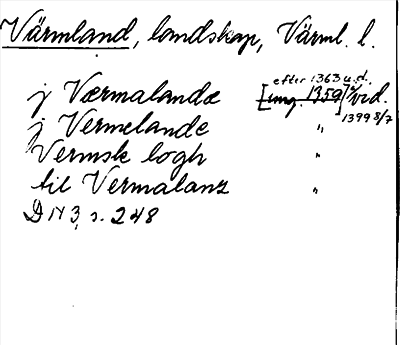 Värmland, landskap, Värml. l.
efter 1363 u.d.
j Værmalandæ [omg. 1359] vid.
j Vermelande " 1399 8/7
Vermsk logh "
til Vermalanz "
DN 3, s. 248